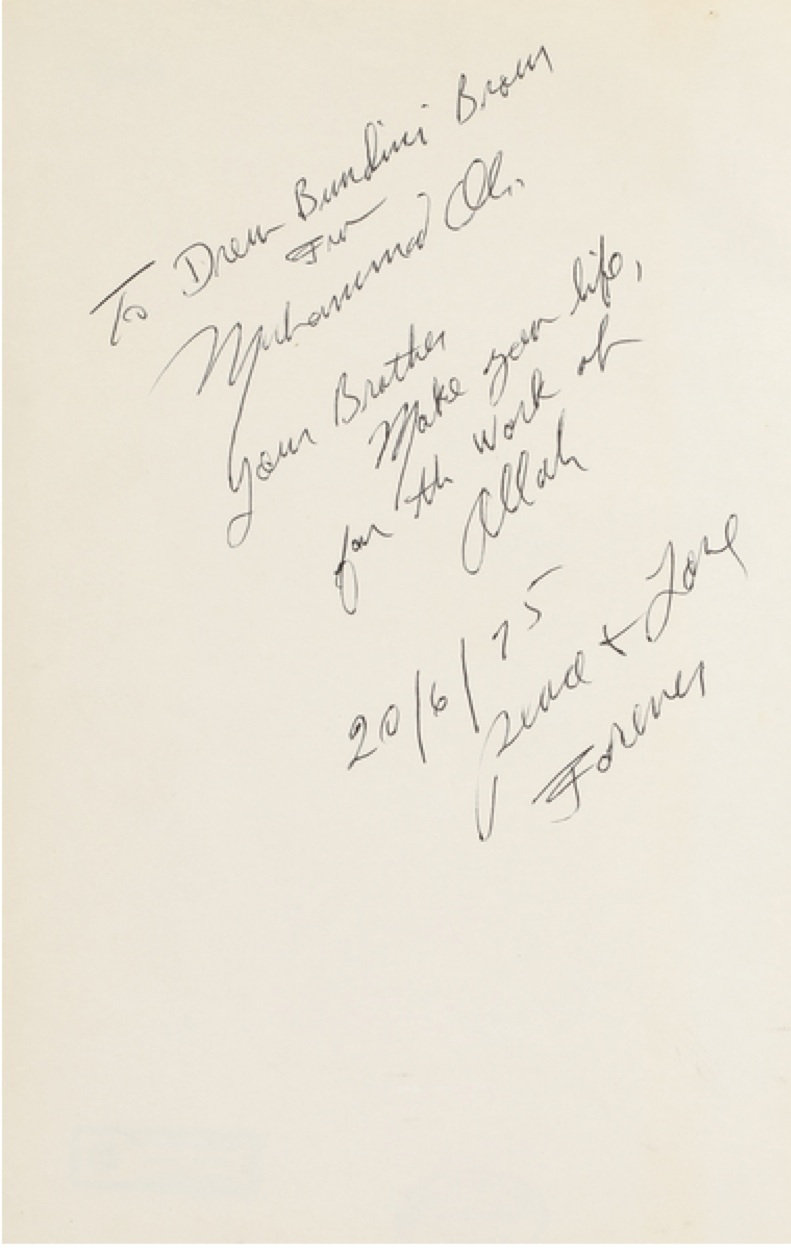 To Drew Bundini Brown
From
Muhammad Ali.
Your Brother
Make your life,
for the work of
Allah
20/6/75
Peace + Love
Forever